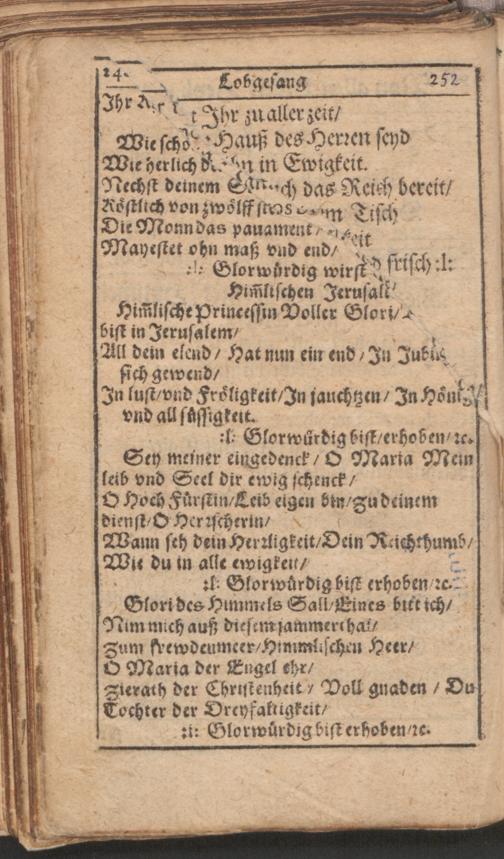 24. Lobgesang 252
Ihr zu aller zeit/
Wie Hauß des Herren seyd
Wie herlich in Ewigkeit.
Nechst deinem das Reich bereit/
Köstlich von zwölff Tisch
Die Monn das pauament/
Mayestet ohn maß vnd end/
:l: Glorwürdig wirst frisch :l:
Him̃lischen
Him̃lische Princessin Voller Glori/
bist in Jerusalem/
All dein elend/ Hat nun ein end/ In
sich gewend/
In lust/vnd Fröligkeit/In jauchtzen/ In
vnd all süssigkeit.
:l: Glorwürdig bist/erhoben/ ꝛc.
Sey meiner eingedenck/ O Maria Mein
leib vnd Seel dir ewig schenck/
O Hoch Fürstin/Leib eigen bin/zu deinem
dienst/O Herrscherin/
Wann seh dein Herrligkeit/Dein Reichthumb/
Wie du in alle ewigkeit/
:l: Glorwürdig bist erhoben/ꝛc.
Glori des Himmels Sall/Eines bitt ich/
Nim mich auß diesem jammerthal/
Zum frewdenmeer/Himmlischen Heer/
O Maria der Engel ehr/
Zierath der Christenheit/ Voll gnaden/ Du
Tochter der Dreyfaltigkeit/
:l: Glorwürdig bist erhoben/ꝛc.